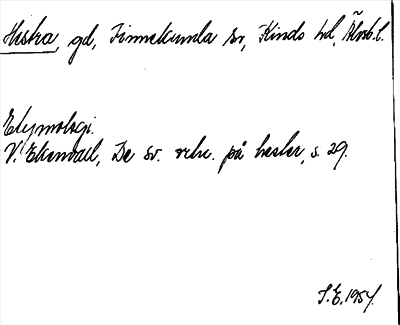 Hiskra, gd, Finnekumla sn, Kinds hd, Älvsb.l.
Etymologi.
V. Ekenvall, De sv. ortn. på hester, s. 29.
S.E. 1954.